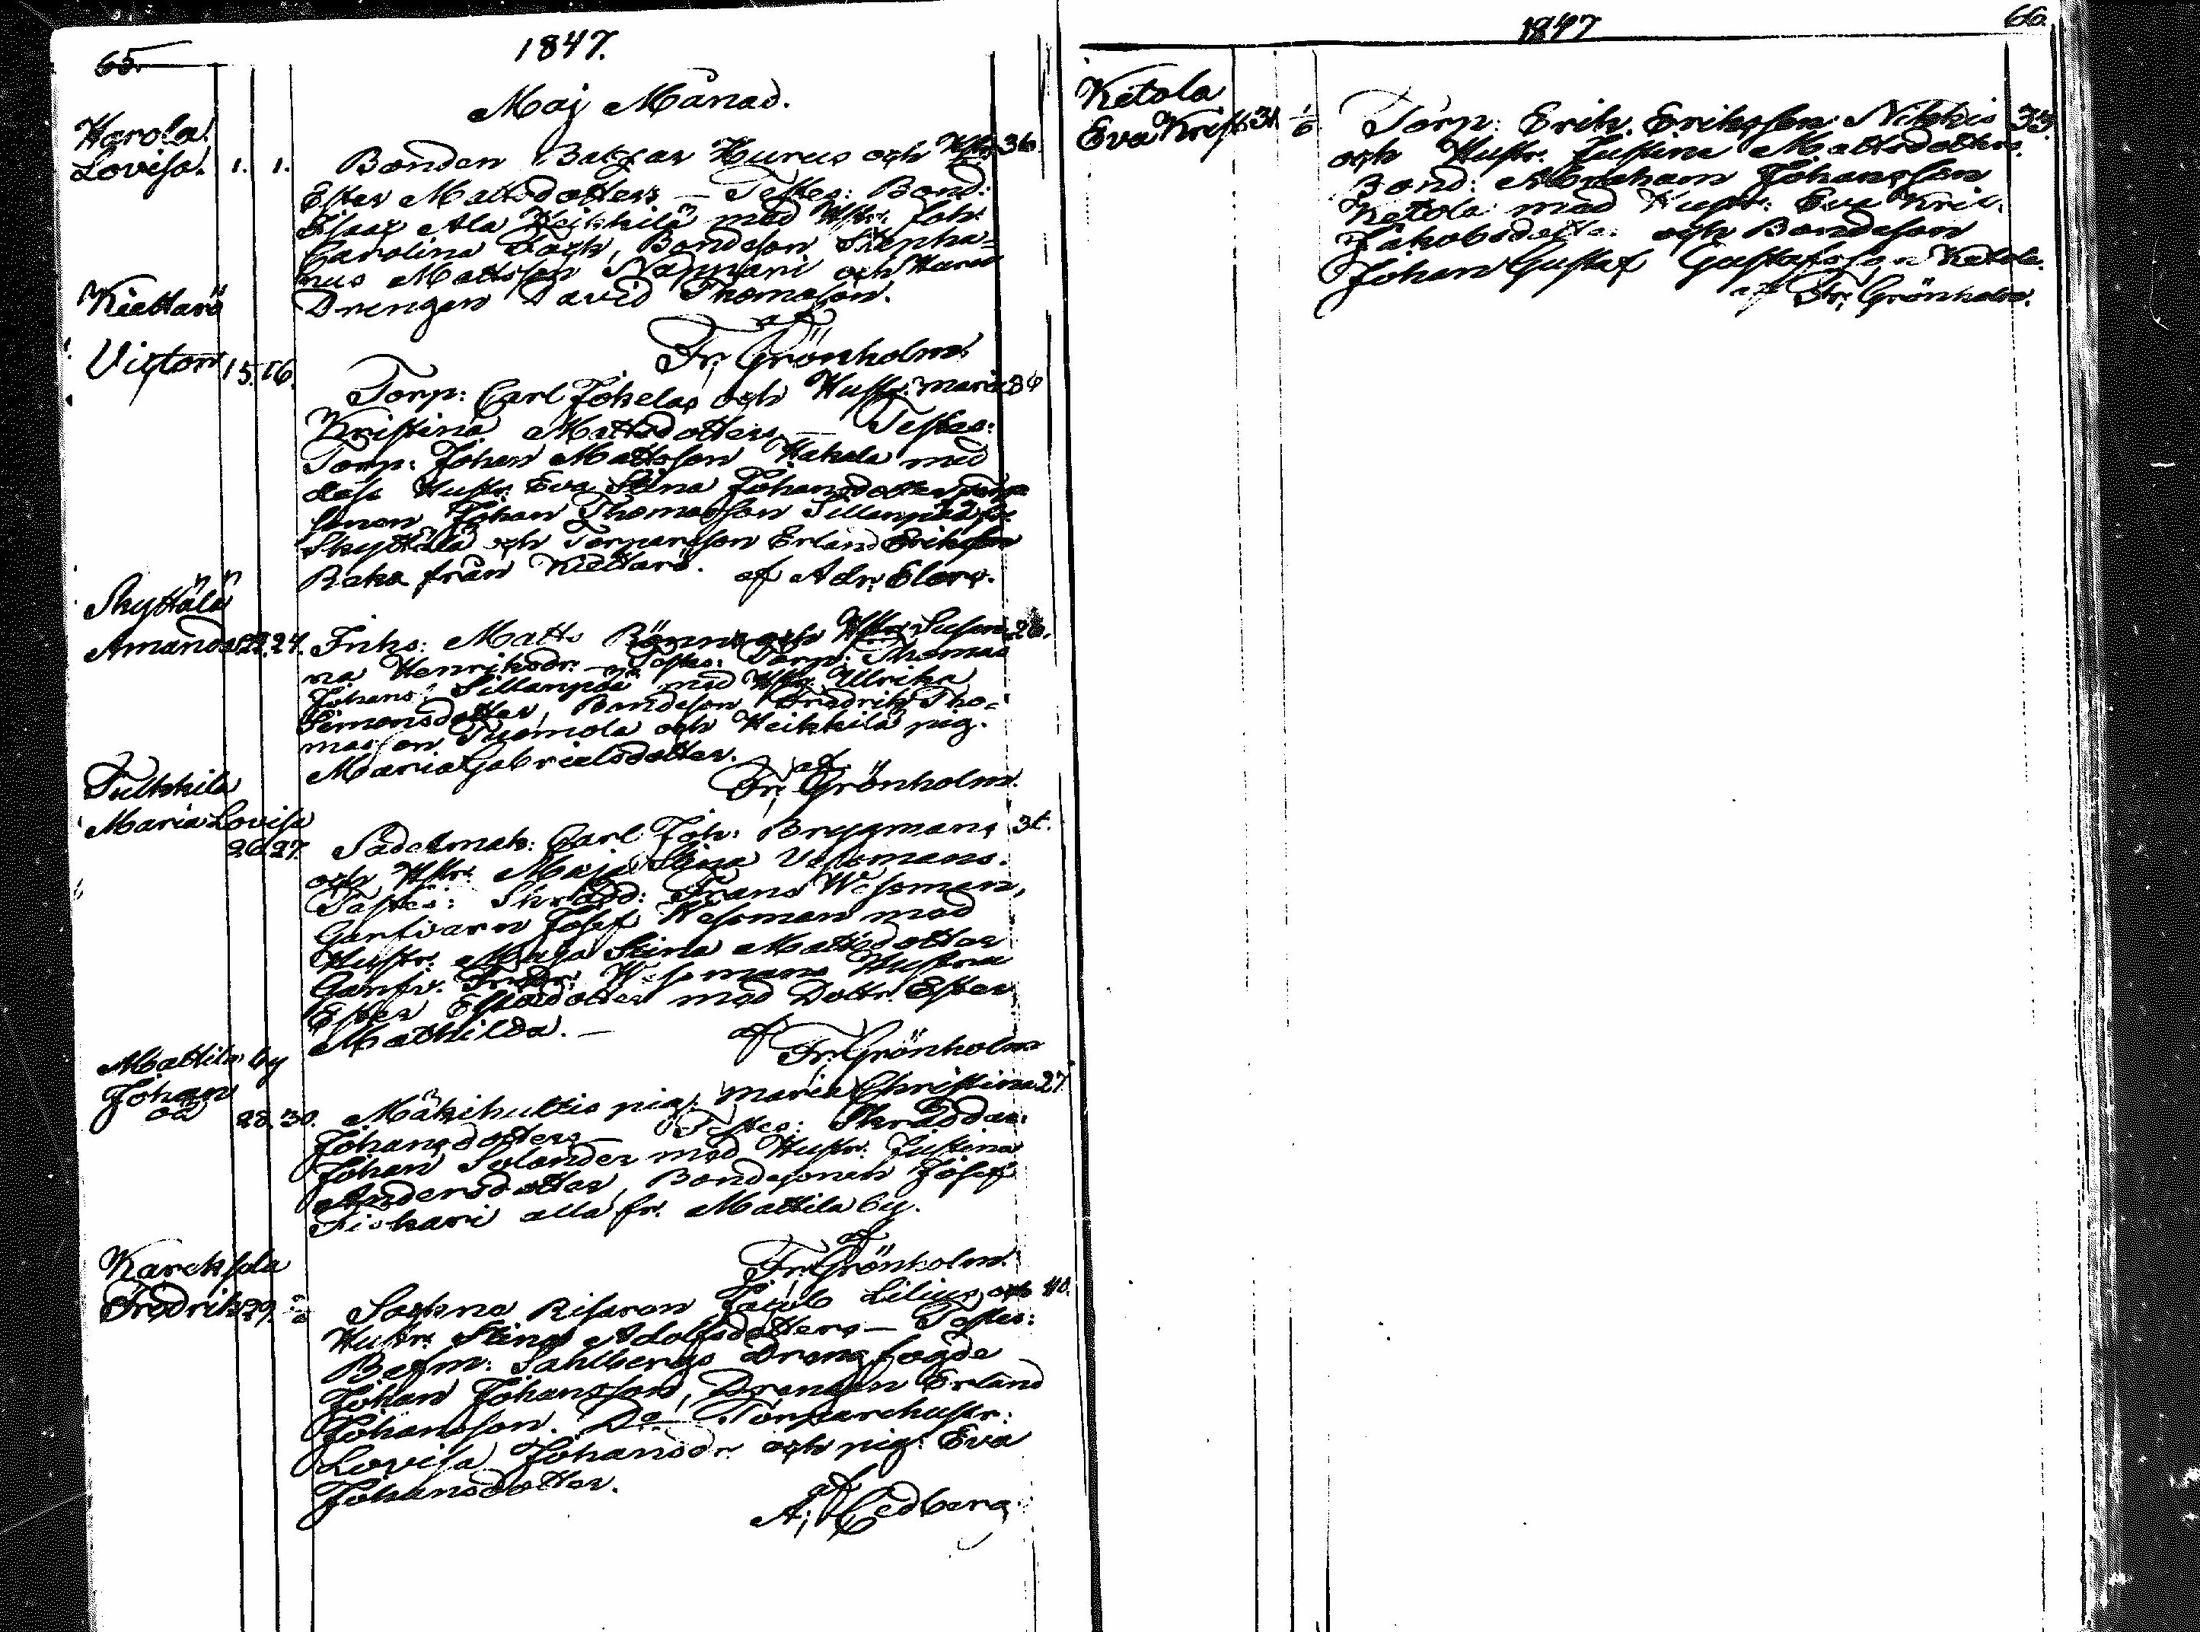 65.
1847.
Maj Månad.
Harola.
Lovisa. 1. 1. Bonden Batzar Hurus och Hstr 36.
Ester Mattsdotters — Testes: Bond:
Isaac Ala Heikkilä med Hstr: Joh:
Carolina Fagh, Bondeson Stepha=
nus Mattsson Näpinäri och Harola
Drengen David Thomasson.
af
Fr. Grönholm.
Kiettarö
Victor 15. 16. Torp: Carl Johelas och Hustr: Maria 36
Kristina Mattsdotters — Testes:
Torp: Johan Mattsson Hakala med
dess Hustr. Eva Stina Johansdotter,
Johan Thomasson Sillanpää
Skyttälä och Torpareson Erland Eriksson
Raka från Kiettarö. af Adr. Elers.
Skyttälä
Amanda 22. 24. Inhs: Matts och Hstr Susan= 26.
na Henriksdr: — Testes: Torp: Thomas
Johans: Sillanpää med Hstr Ulrika
Simonsdotter, Bondeson Fredrik Tho=
masson Tuomola och Heikkilä pig.
Maria Gabrielsdotter.
af
Fr. Grönholm.
Tulkkila
Maria Lovisa
26. 27. Sadelmak: Carl Joh: Bryggmans 31.
och Hstr: Maja Stina Vessmans.
Testes: Skrädd: Frans Wessman,
Garfvarn Josef Wessman med
Hustr. Maja Stina Mattsdotter
Garfv. Fredr: Wessmans Hustru
Ester Esaidotter med Dottr. Ester
Mathilda. —
af
Fr. Grönholm
Mattila by
Johan
oä 28. 30. Mäkihuttis pig. Maria Christina 27.
Johansdotters — Testes: Skräddar:
Johan Solander med Hustr: Justina
Andersdotter, Bondesonen Josef
Fiskari alla fr. Mattila by.
af
Fr. Grönholm.
Kareksela
Fredrik 29. Sockne Risaren Jacob Lilius och 40.
Hustr: Stina Adolfsdotters — Testes:
Befm: Sahlbergs Drengfogde
Johan Johansson, Drengen Erland
Johansson. Do Torparehustr:
Lovisa Johansdr. och pig: Eva
Johansdotter.
af
A. Cedberg.
1847
66.
Ketola
Eva Krist. 31. 1/6 Torp: Erik Eriksson Nikkis 33.
och Hustr. Justina Mattsdotters.
Bond: Abraham Johansson
Ketola med Hustr: Eva Kris:
Jakobsdotter och Bondeson
Johan Gustaf Gustafsson Ketola.
af Fr. Grönholm.